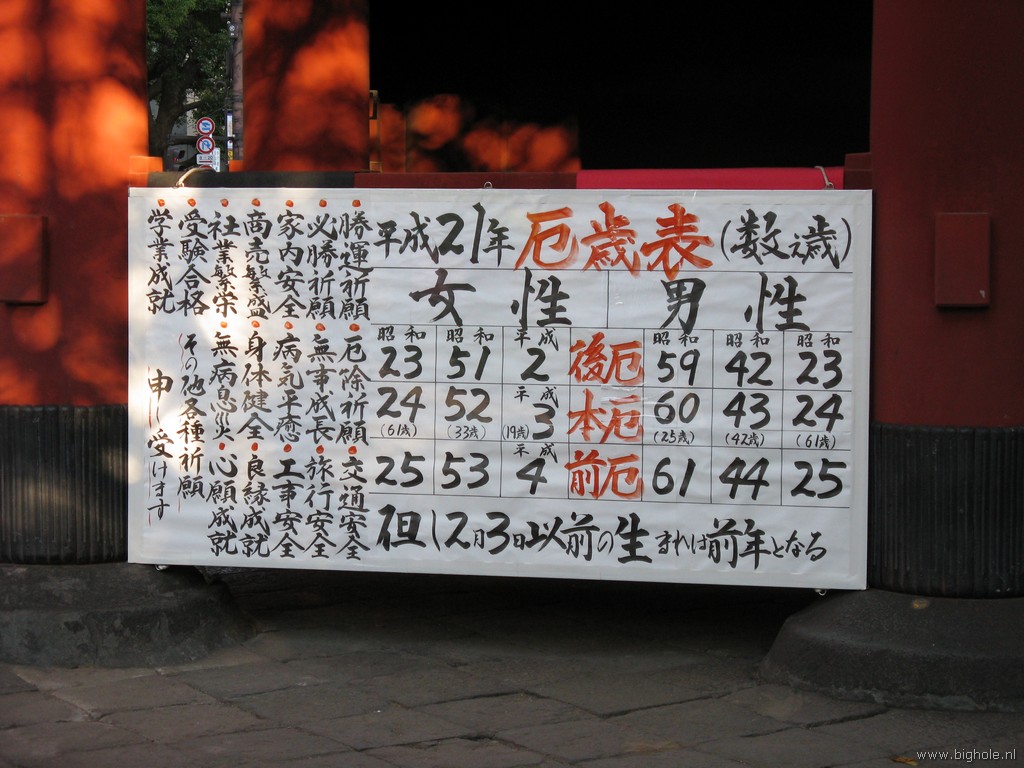 平成21年 厄歳表 (数え歳)
女性 男性
昭和23 昭和51 平成2 後厄 昭和59 昭和42 昭和23
24 52 平成3 本厄 60 43 24
(61歳) (33歳) (19歳) (25歳) (42歳) (61歳)
25 53 平成4 前厄 61 44 25
但し2月3日以前の生まれは前年となる
・勝運祈願・厄除祈願・交通安全
・必勝祈願・無事成長・旅行安全
・家内安全・病気平癒・工事安全
・商売繁盛・身体健全・良縁成就
・社業繁栄・無病息災・心願成就
・受験合格 その他各種祈願
・学業成就 申し受けます
www.bighole.nl